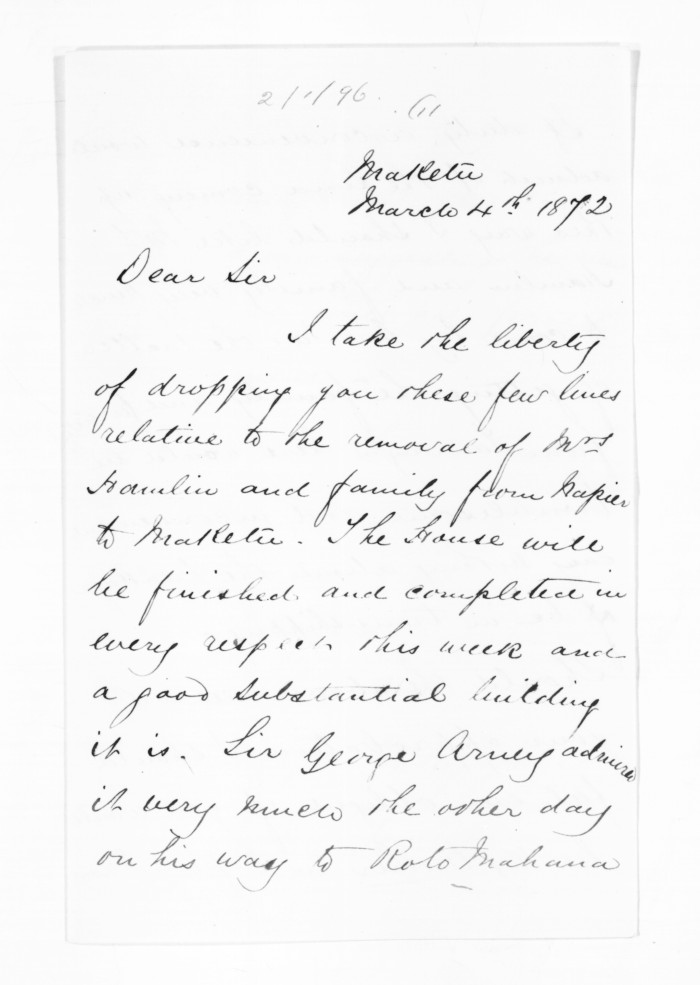 2/1/96.
Maketu
March 4th 1872
Dear Sir
I take the liberty
of dropping you these few lines
relative to the removal of Mrs
Hamlin and family from Napier
to Maketu. The House will
be finished and completed in
every respect this week and
a good substantial building
it is. Sir George Arney admired
it very much the other day
on his way to Roto Mahana